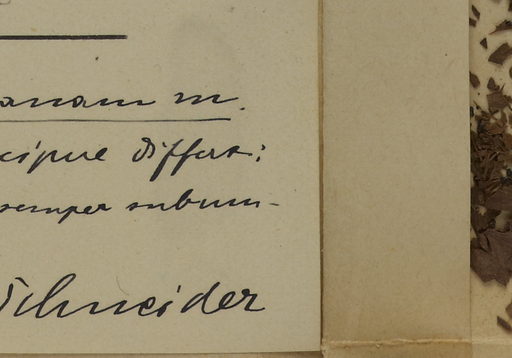 anam m.
cipue differt:
semper subum-
Schneider